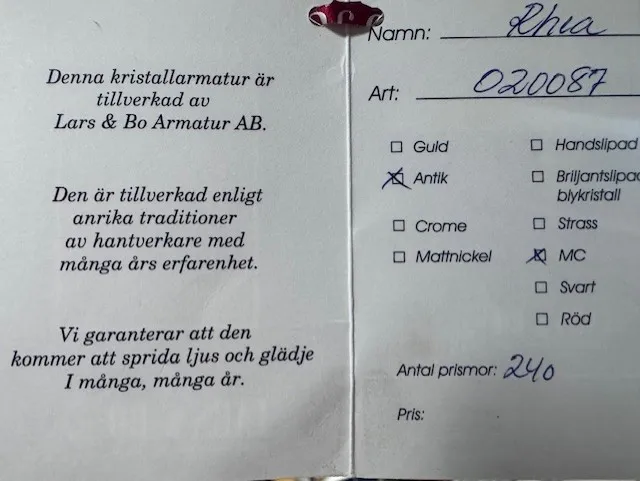 Denna kristallarmatur är
tillverkad av
Lars & Bo Armatur AB.
Den är tillverkad enligt
anrika traditioner
av hantverkare med
många års erfarenhet.
Vi garanterar att den
kommer att sprida ljus och glädje
I många, många år.
Namn: Rhea
Art: 020087
Guld
Handslipad
Antik
Briljantslipad
blykristall
Crome
Strass
Mattnickel
MC
Svart
Röd
Antal prismor: 240
Pris: